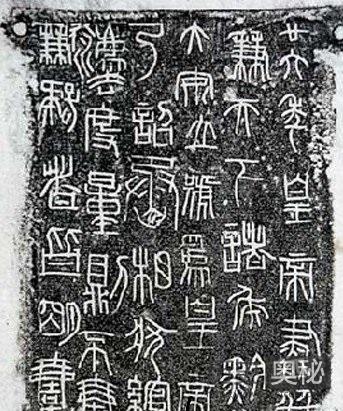 廿六年皇帝盡并
兼天下諸侯黔
大安立號為皇帝
乃詔丞相狀綰
灋度量則不壹
歉疑者皆明壹
奥秘